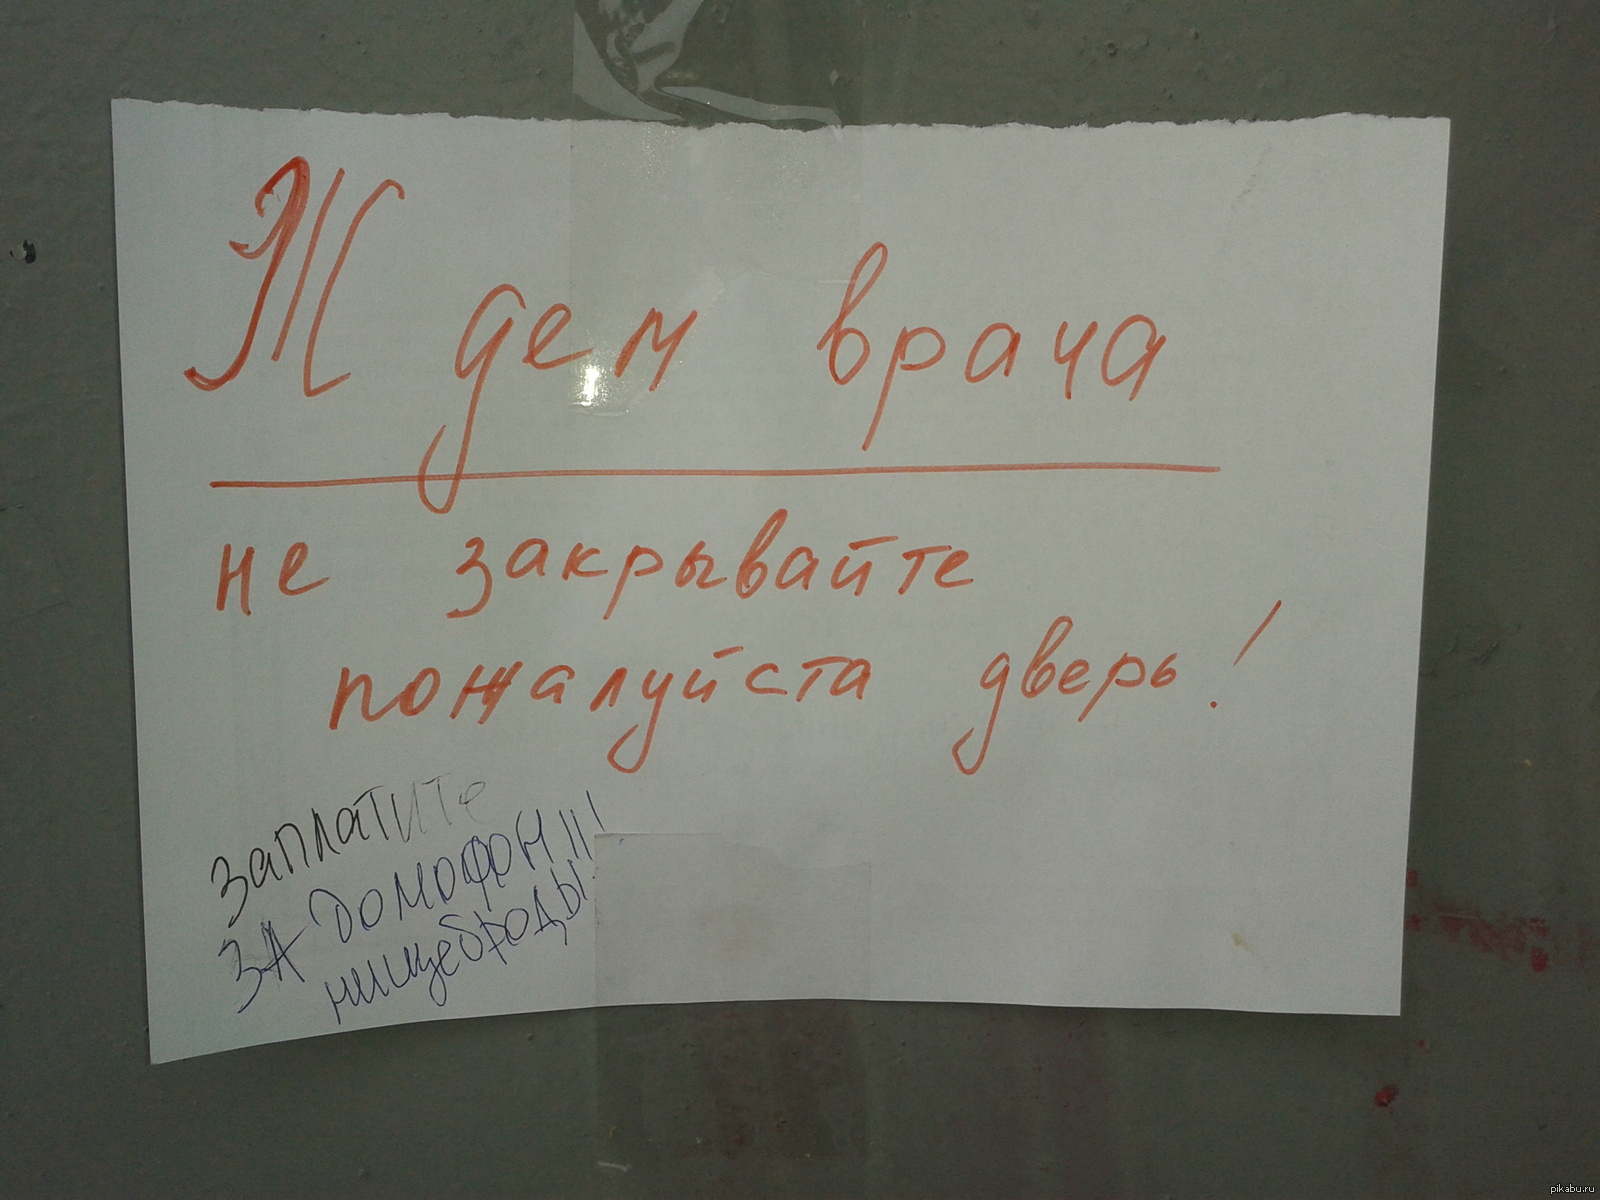 Ждем врача
не закрывайте
пожалуйста дверь!
заплатите
ЗА ДОМОФОН!!!
нищеброды!
pikabu.ru